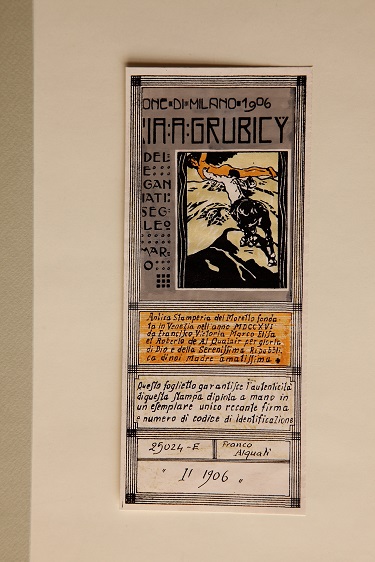 ONE·DI·MILANO·1906
IA·A·GRUBICY
DEL
E
GAN
IATI
SEG
LEO
MAR
O
Antica Stamperia del Moretto fonda
ta in Venezia nell'anno MDCCXVI
da Francisco Victoria Marco Elisa
et Roberto de Al Qualair per gloria
di Dio e della Serenissima Repubbli
ca di noi Madre amatissima
Questo foglietto garantisce l'autenticità
di questa stampa dipinta a mano in
un esemplare unico recante firma
e numero di codice di Identificazione
25024-E
Franco
Alquati
" Il 1906 "